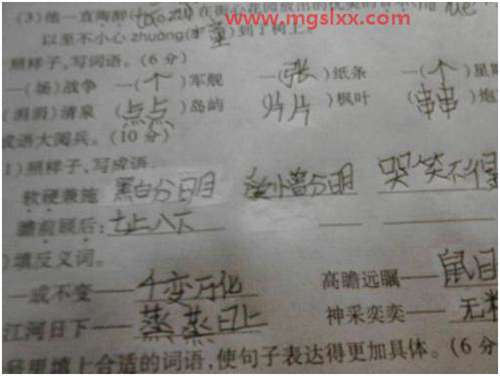 www.mgslxx.com
(3)他一直陶醉(
以至不小心zhuàng( 撞 )到了树上。
照样子,写词语。(6分)
一(场)战争 一(个)军舰 一(张)纸条 一(个)星
(涓涓)清泉 (点点)岛屿 (片片)枫叶 (串串)炮
成语大阅兵。(10分)
1)照样子、写成语
软硬兼施 黑白分明 哭笑不得
瞻前顾后: 七上八下
)填反义词。
一成不变——千变万化 高瞻远瞩——鼠目
江河日下——蒸蒸日上 神采奕奕——无精
号里填上合适的词语,使句子表达得更加具体。(6分